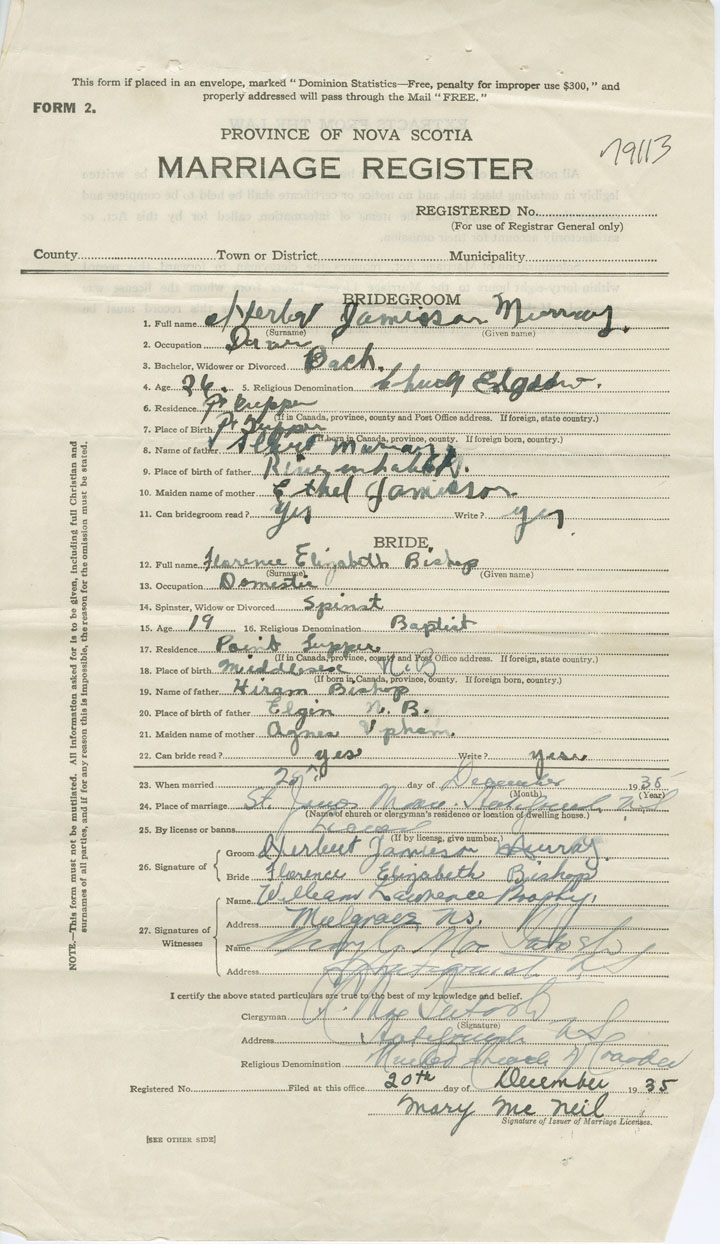 This form if placed in an envelope, marked "Dominion Statistics—Free, penalty for improper use $300," and
properly addressed will pass through the Mail "FREE."
FORM 2.
PROVINCE OF NOVA SCOTIA
MARRIAGE REGISTER
79113
REGISTERED No.
(For use of Registrar General only)
County Town or District Municipality
BRIDEGROOM
1. Full name Herbert Jamieson Murray.
(Surname) (Given name)
2. Occupation
3. Bachelor, Widower or Divorced Bach.
4. Age 26. 5. Religious Denomination Church
6. Residence Pt Tupper
(If in Canada, province, county and Post Office address. If foreign, state country.)
7. Place of Birth Pt Tupper
(If born in Canada, province, county. If foreign born, country.)
8. Name of father Albert Murray
9. Place of birth of father River
10. Maiden name of mother Ethel Jamieson
11. Can bridegroom read? Yes Write? yes
BRIDE
12. Full name Florence Elizabeth Bishop
(Surname) (Given name)
13. Occupation Domestic
14. Spinster, Widow or Divorced Spinst
15. Age 19 16. Religious Denomination Baptist
17. Residence Point Tupper
(If in Canada, province, county and Post Office address. If foreign, state country.)
18. Place of birth N.B
(If born in Canada, province, county. If foreign born, country.)
19. Name of father Hiram Bishop
20. Place of birth of father Elgin N.B.
21. Maiden name of mother Agnes Upham.
22. Can bride read? yes Write? yes.
23. When married day of December 1935
(Month) (Year)
24. Place of marriage St. James Manse. N.S
(Name of church or clergyman's residence or location of dwelling house.)
25. By license or banns License
(If by license, give number.)
26. Signature of Groom Herbert Jamieson Murray.
Bride Florence Elizabeth Bishop
27. Signatures of Witnesses
Name William Lawrence Brophy.
Address Mulgrave N.S.
Name
Address N.S
I certify the above stated particulars are true to the best of my knowledge and belief.
Clergyman
(Signature)
Address N.S.
Religious Denomination United Church of Canada
Registered No. Filed at this office 20th day of December 1935
Mary Mc Neil
Signature of Issuer of Marriage Licenses.
[SEE OTHER SIDE]
NOTE.—This form must not be mutilated. All information asked for is to be given, including full Christian and
surnames of all parties, and if for any reason this is impossible, the reason for the omission must be stated.